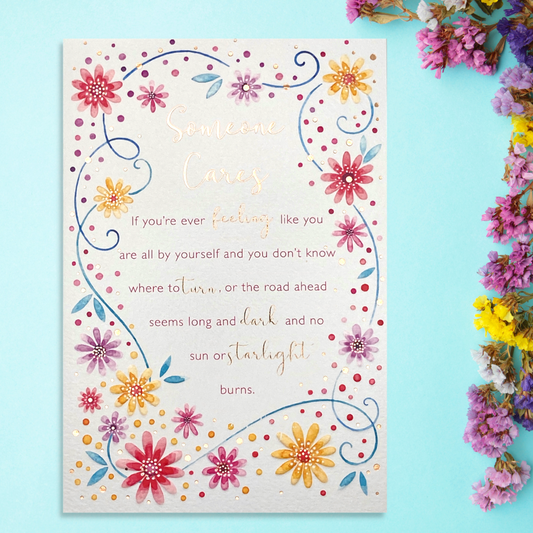 Someone
Cares
If you're ever feeling like you
are all by yourself and you don't know
where to turn, or the road ahead
seems long and dark and no
sun or starlight
burns.